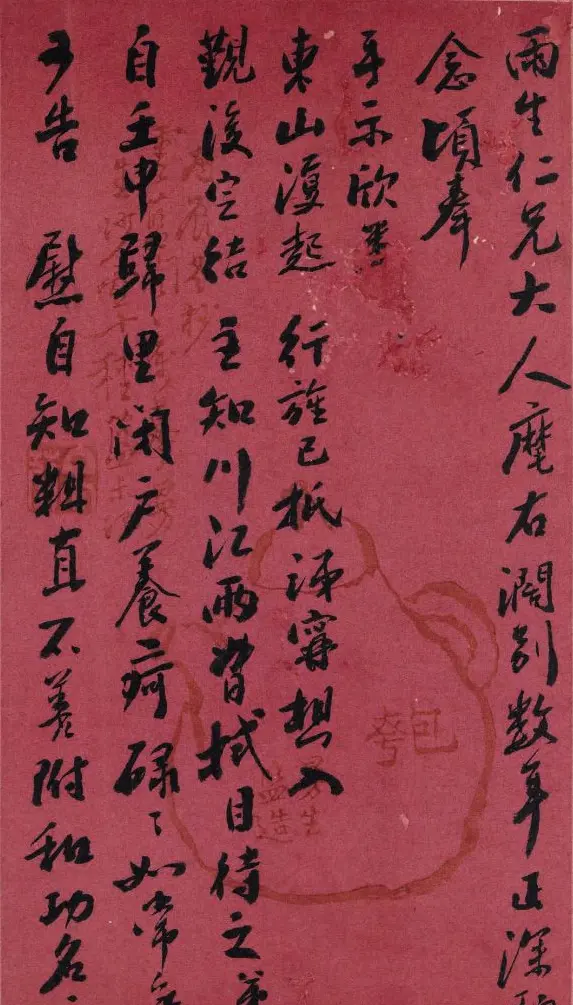 雨生仁兄大人麾右濶別数年正深
念頃奉
手示欣悉
東山復起 行旌已抵寧想入
覲後定结 主知川江兩督拭目待之弟
自壬申歸里閉户養疴碌〻如常
可告 慰自知粗直不善附和功名
包
曼生
監造